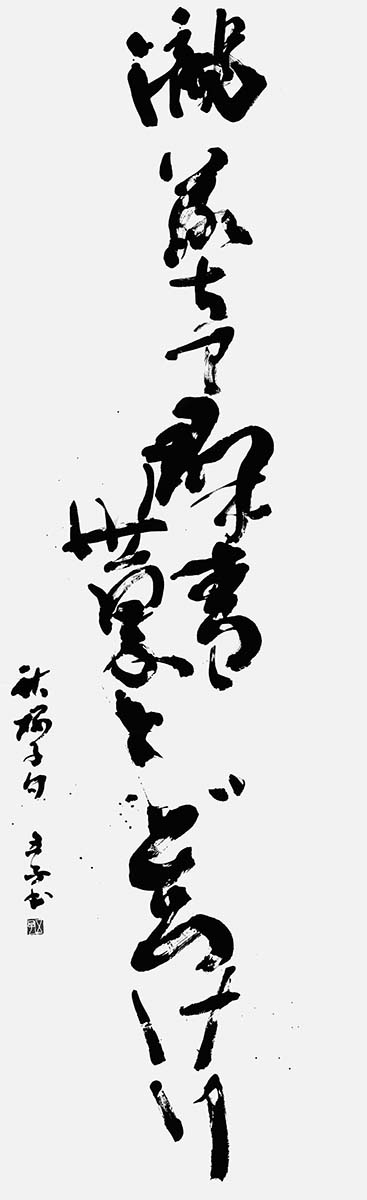 瀧落ちて群青
世界とどろけり
秋桜子句 書